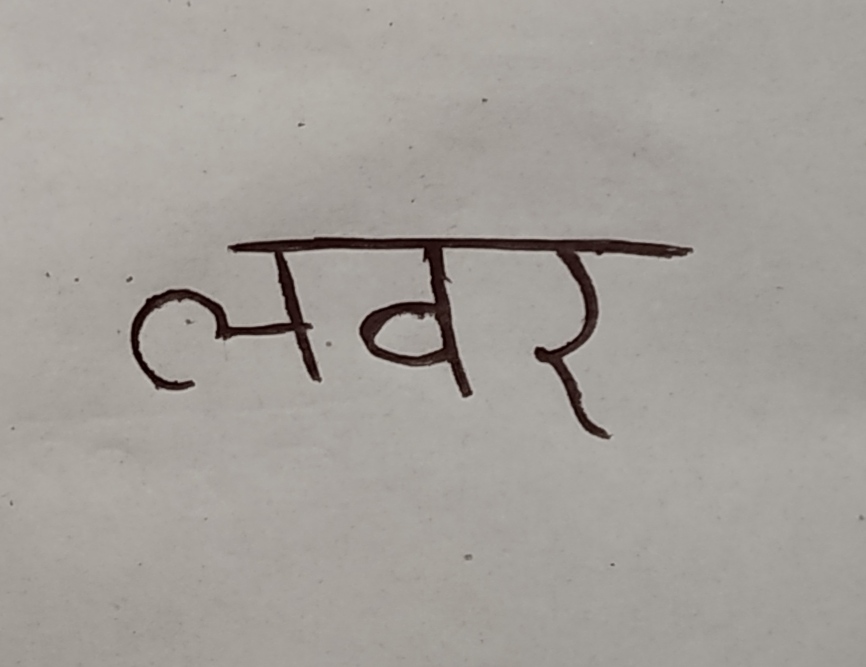 लवर